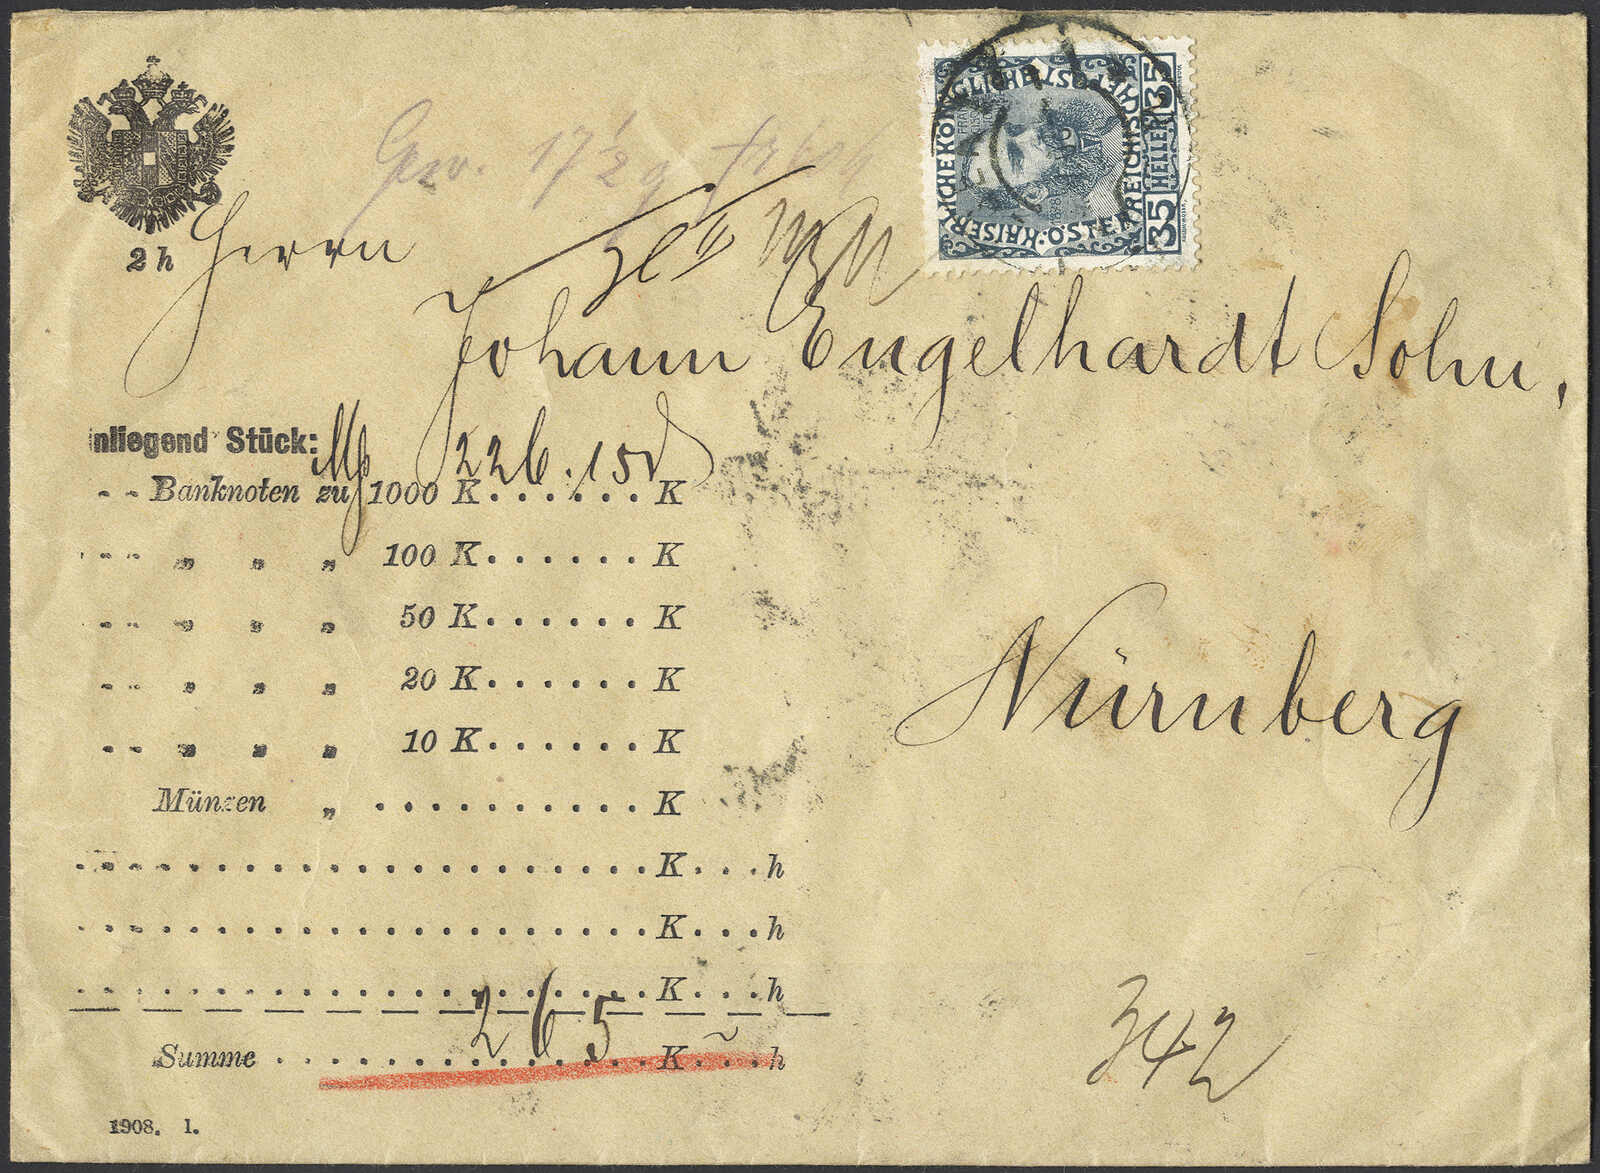 2 h
Gew. 17 ½ g
Herrn
Johann Engelhardt Sohn,
KAISERLICHE KÖNIGLICHE ÖSTERREICHISCHE
35 HELLER 35
nliegend Stück:
226.15
Banknoten zu 1000 K . . . . . . K
„ „ „ 100 K . . . . . . K
„ „ „ 50 K . . . . . . K
„ „ „ 20 K . . . . . . K
„ „ „ 10 K . . . . . . K
Münzen „ . . . . . . . . . . K
. . . . . . . . . . . . . . . . . . . . K . . . h
. . . . . . . . . . . . . . . . . . . . K . . . h
. . . . . . . . . . . . . . . . . . . . K . . . h
Summe . . . 265 K ~ h
Nürnberg
342
1908. 1.